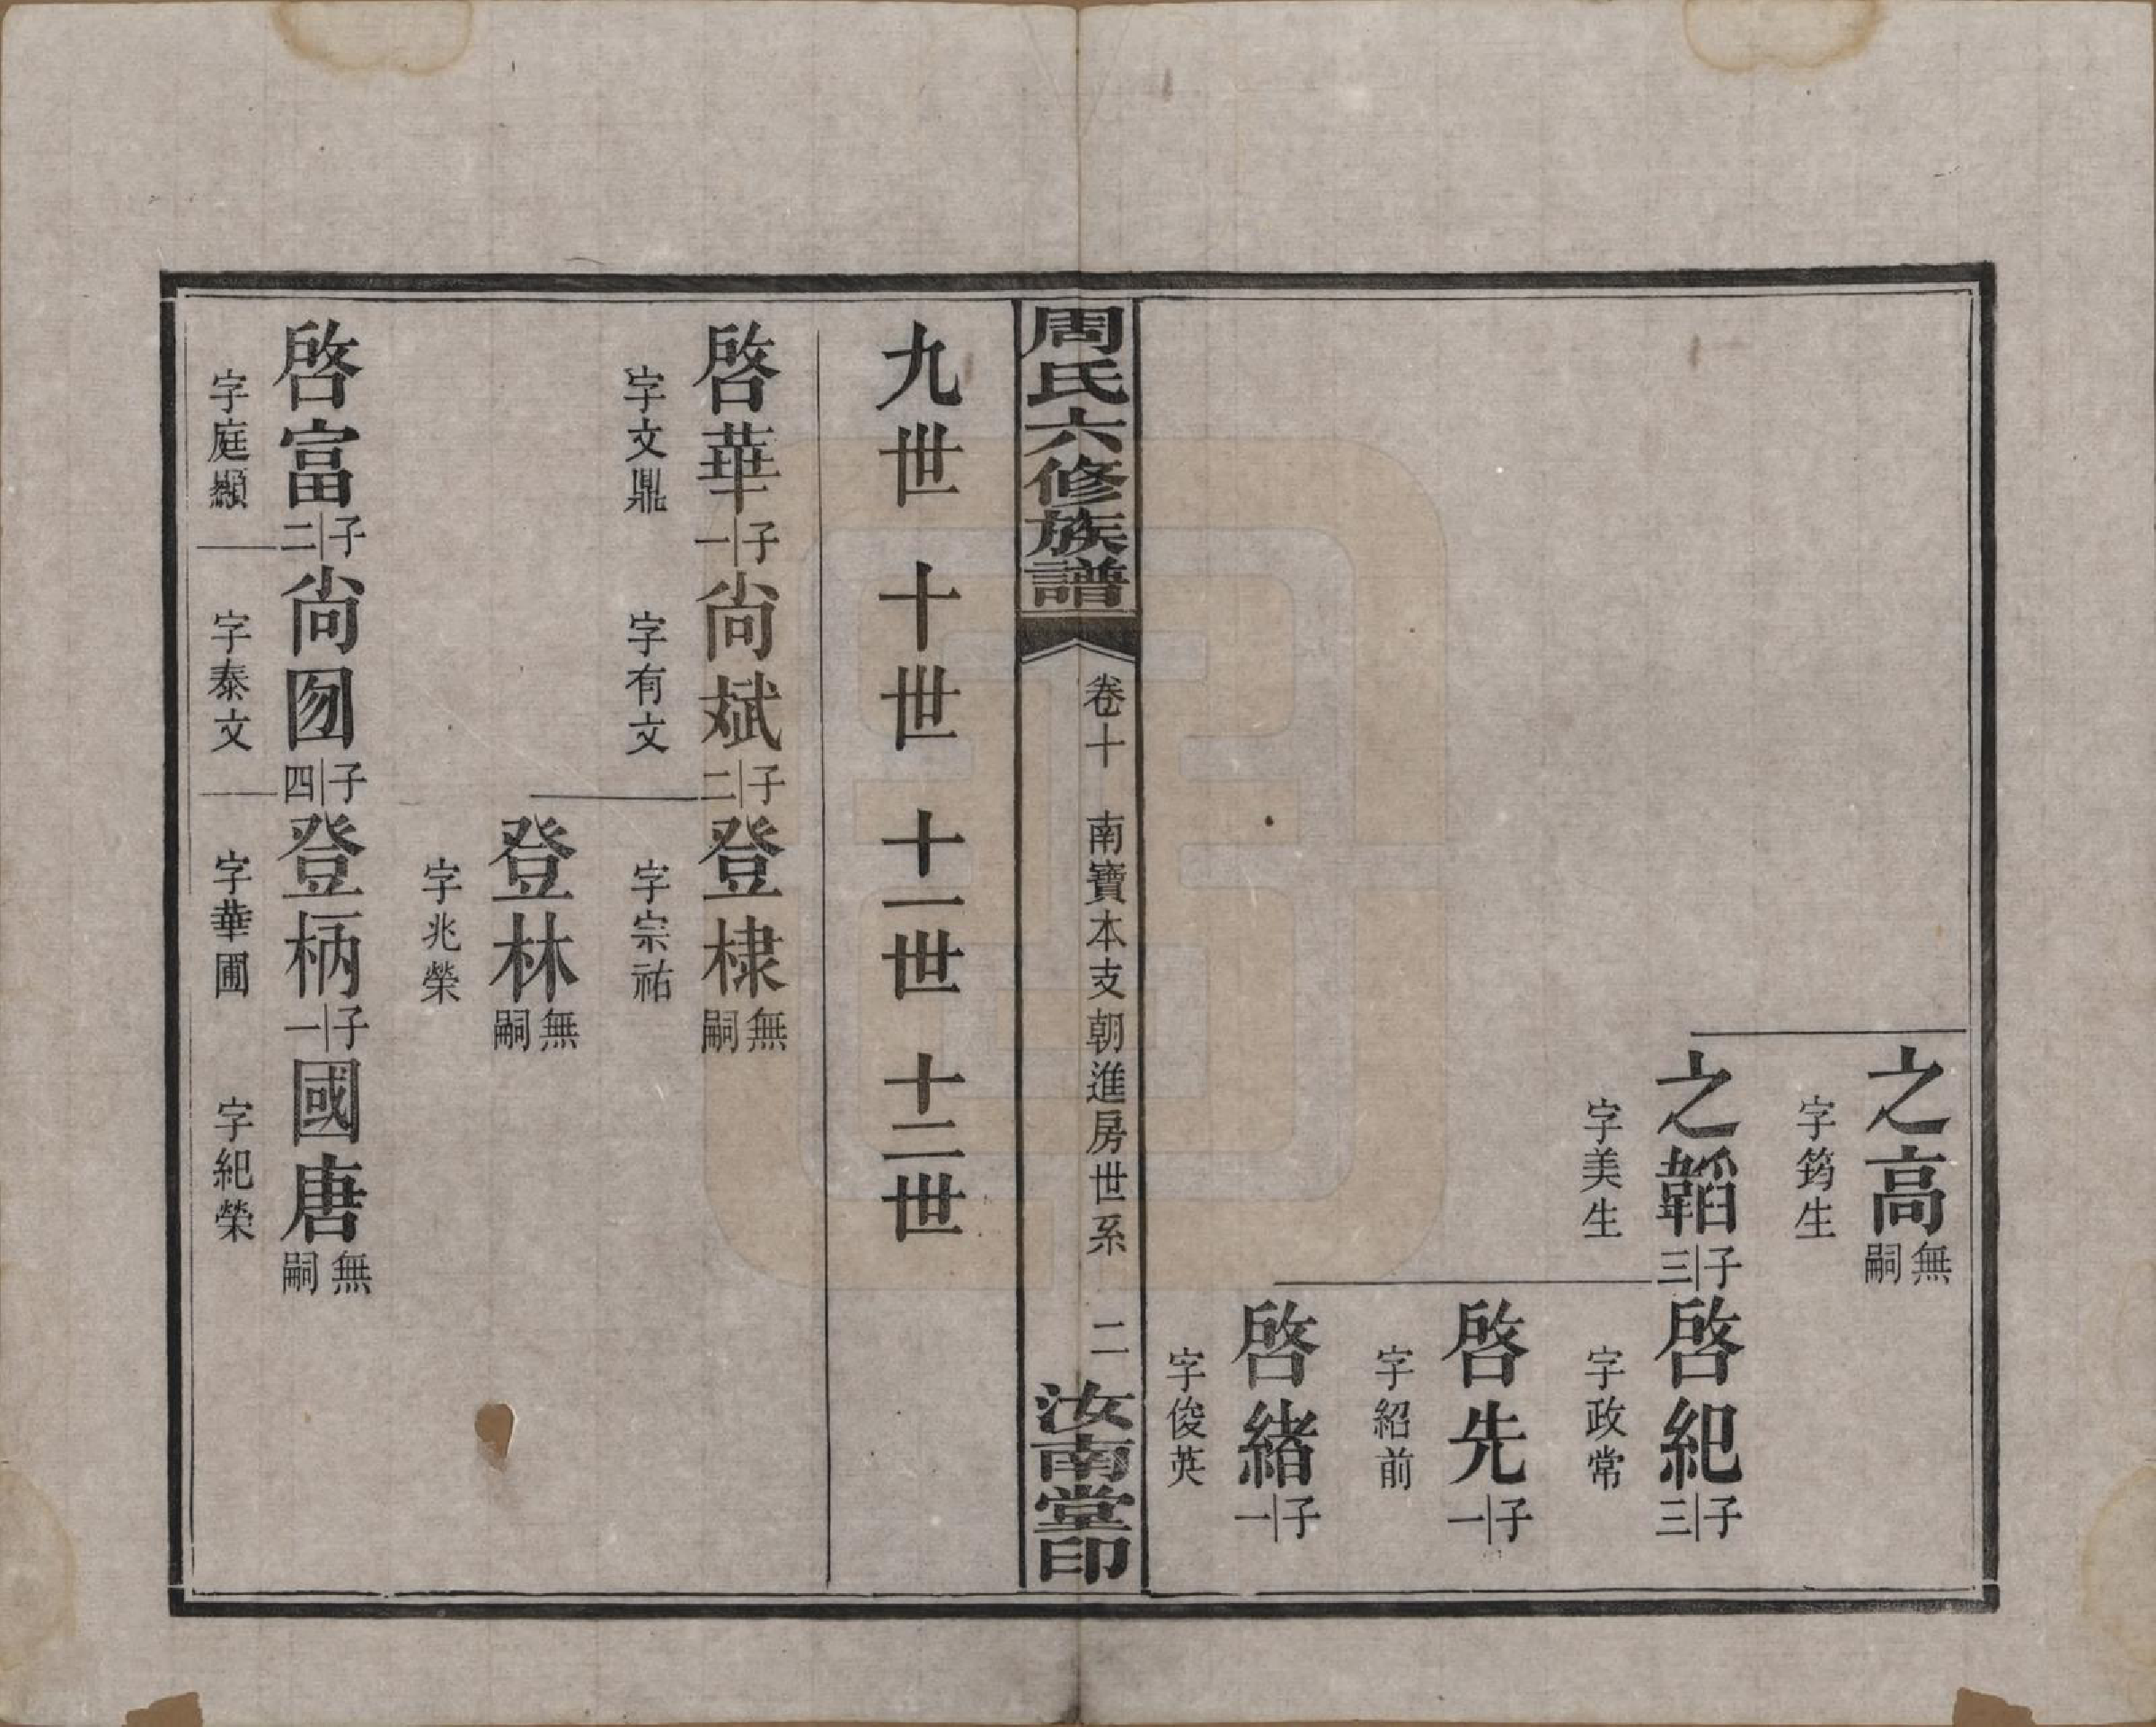 之高 無嗣
字筠生
之韜 子三 啓紀 子三
字美生 字政常
啓先 子一
字紹前
啓緒 子一
字俊英
周氏六修族譜 卷十 南寶本支朝進房世系 二 汝南堂印
九世 十世 十一世 十二世
啓華 子一 尚斌 子二 登棣 無嗣
字文鼎 字有文 字宗祐
登林 無嗣
字兆榮
啓富 子二 尚囫 子四 登柄 子一 國唐 無嗣
字庭顯 字泰文 字華圃 字紀榮